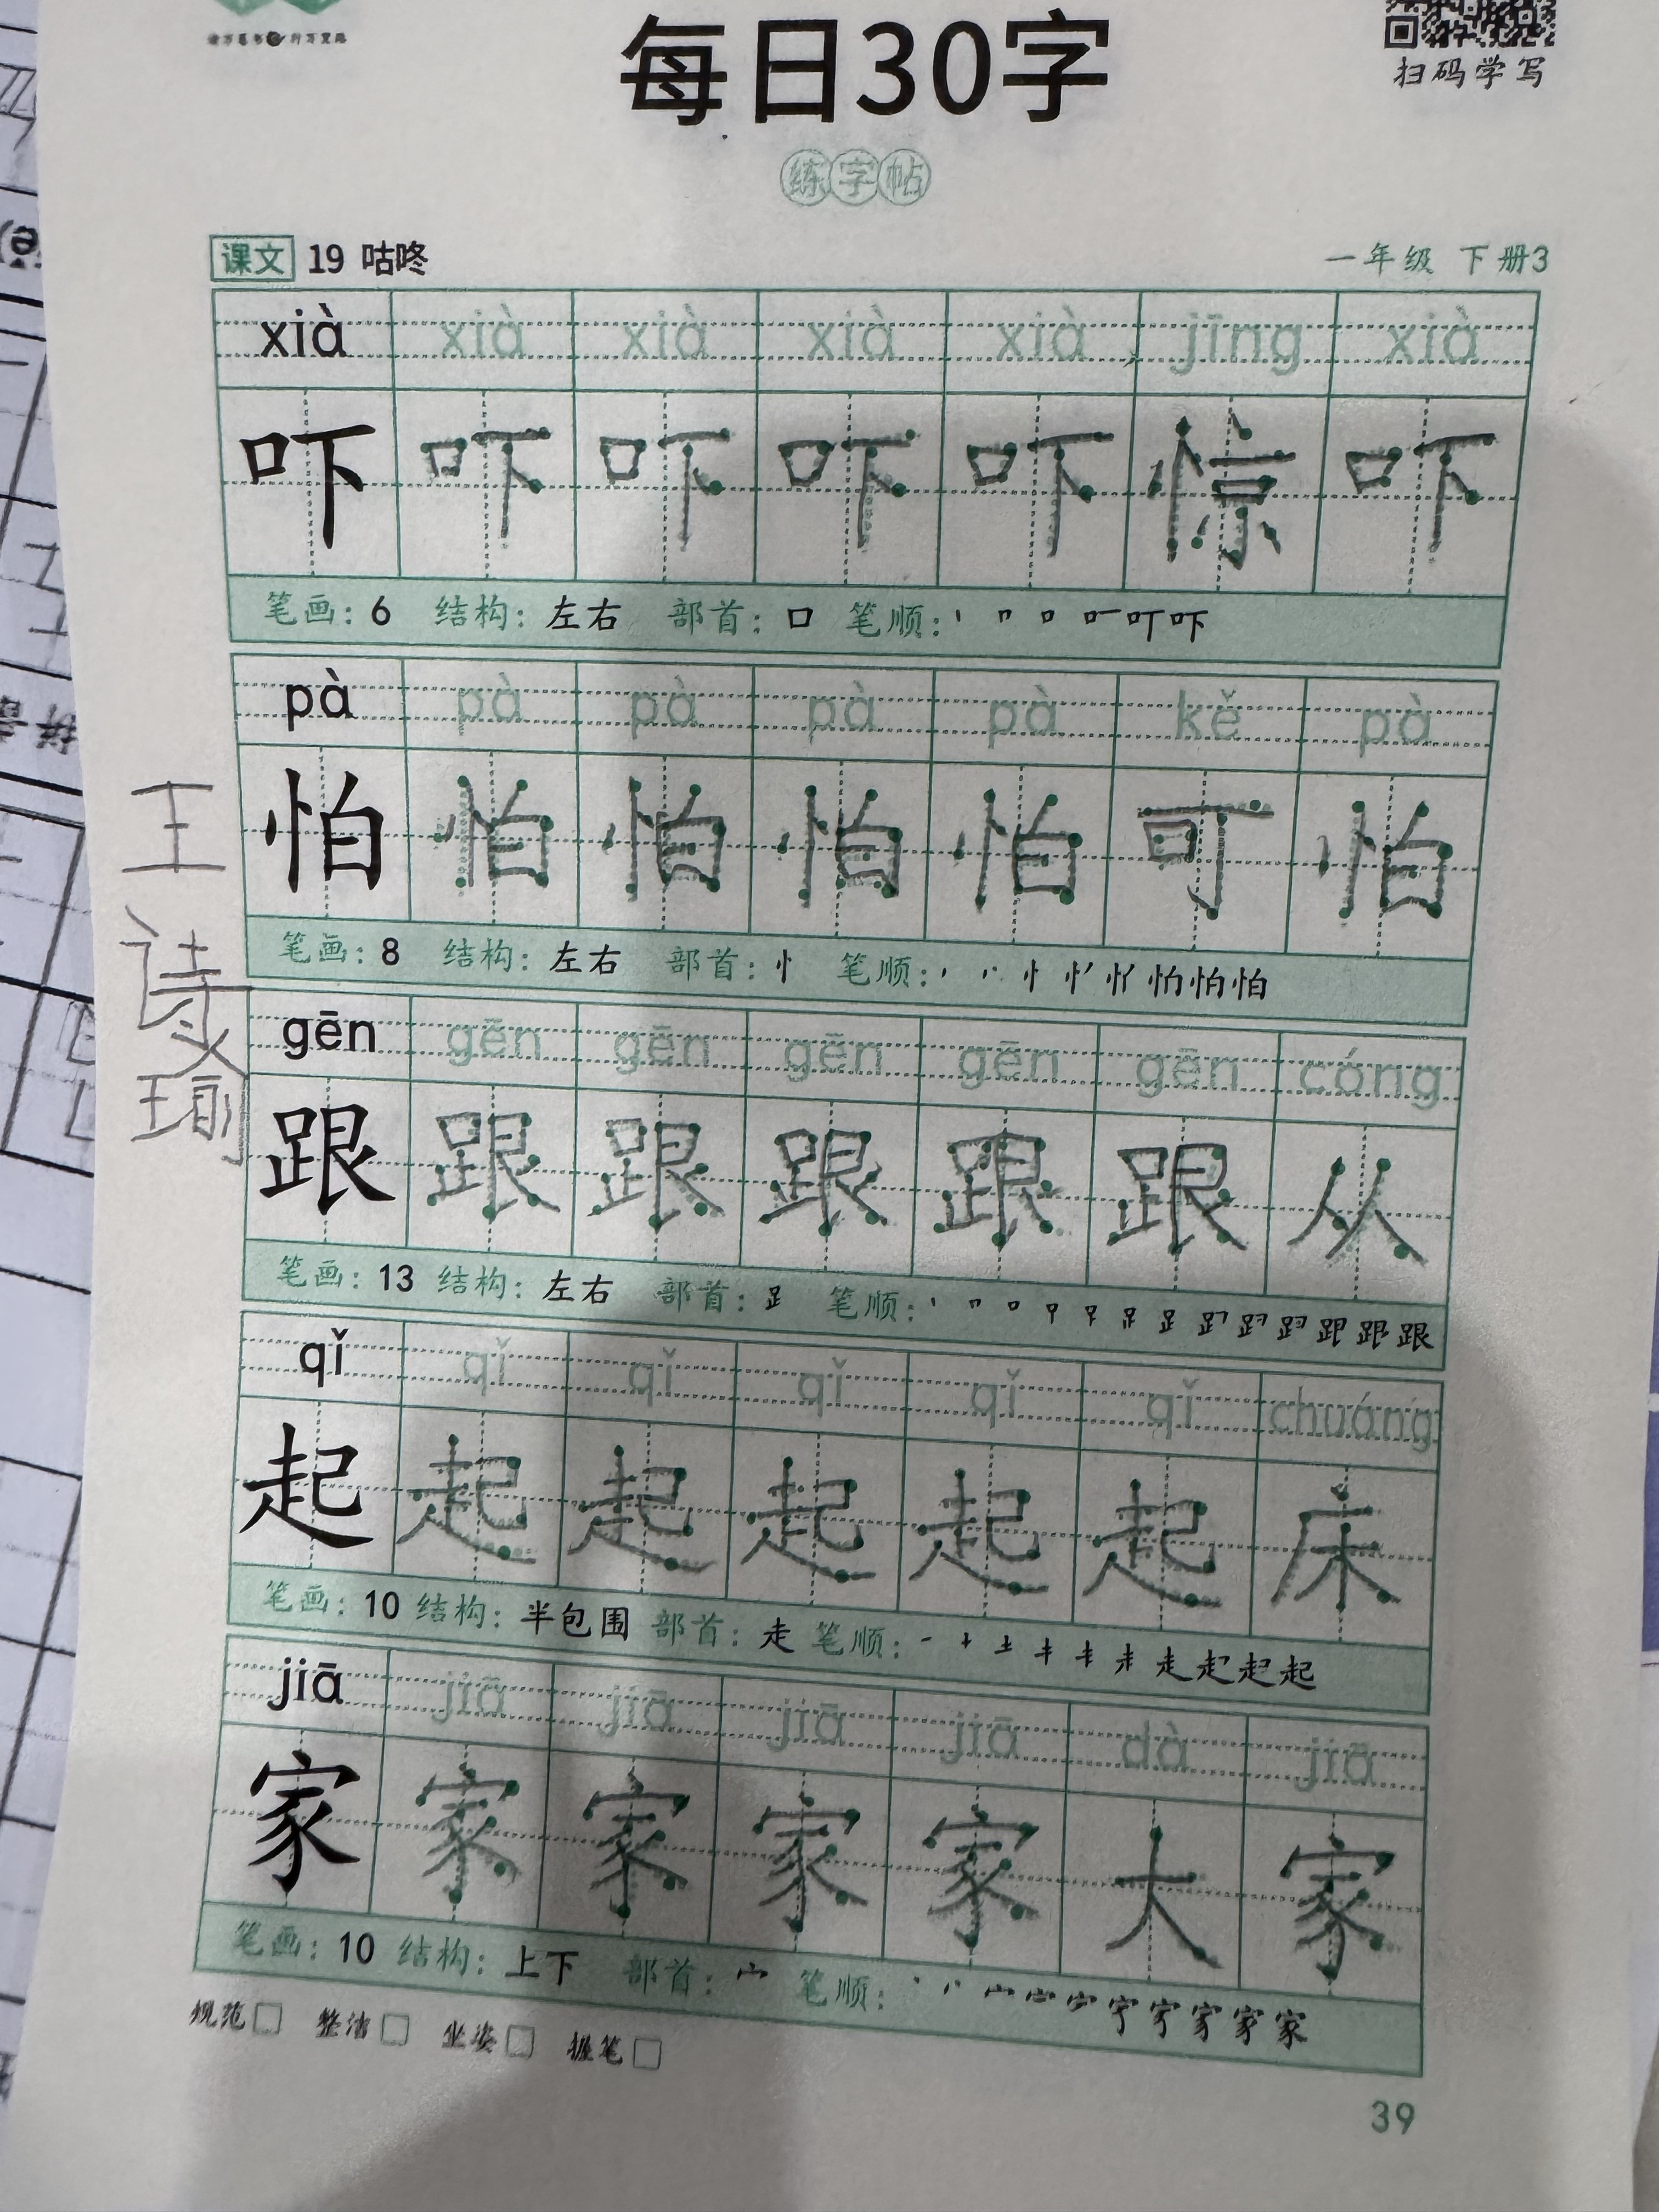 每日30字
扫码学写
练字帖
课文 19 咕咚
一年级 下册3
xià xià xià xià xià jīng xià
吓 吓 吓 吓 吓 惊 吓
笔画：6 结构：左右 部首：口 笔顺：
pà pà pà pà pà kě pà
怕 怕 怕 怕 怕 可 怕
笔画：8 结构：左右 部首：忄 笔顺：
gēn gēn gēn gēn gēn gēn cóng
跟 跟 跟 跟 跟 跟 从
笔画：13 结构：左右 部首：⻊ 笔顺：
qǐ qǐ qǐ qǐ qǐ qǐ chuáng
起 起 起 起 起 起 床
笔画：10 结构：半包围 部首：走 笔顺：
jiā jiā jiā jiā jiā dà jiā
家 家 家 家 家 大 家
笔画：10 结构：上下 部首：宀 笔顺：
规范□ 整洁□ 坐姿□ 握笔□
39
王诗瑜